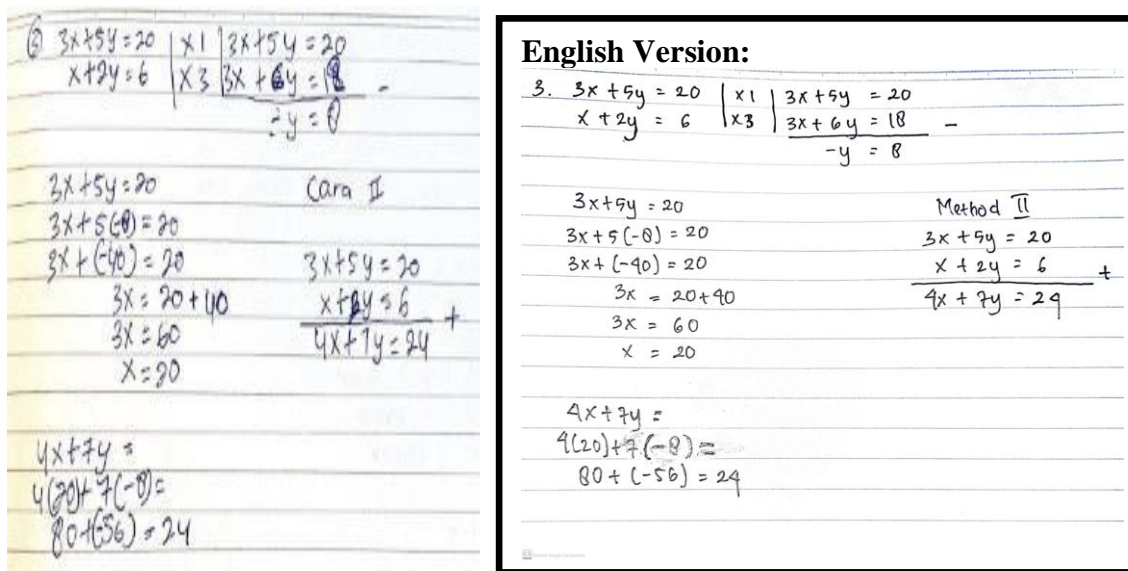 ③ 3x+5y=20 | x1 | 3x+5y = 20
x+2y=6 | x3 | 3x + 6y = 18 -
-y = 8
3x+5y=20
3x+5(-8)=20
3x+(-40)=20
3x = 20+40
3x = 60
x = 20
Cara II
3x+5y=20
x+2y=6 +
4x+7y=24
4x+7y =
4(20)+7(-8)=
80+(-56)=24
English Version:
3. 3x+5y = 20 | x1 | 3x+5y = 20
x+2y = 6 | x3 | 3x+6y = 18 -
-y = 8
3x+5y = 20
3x+5(-8) = 20
3x+(-40) = 20
3x = 20+40
3x = 60
x = 20
Method II
3x+5y = 20
x+2y = 6 +
4x+7y = 24
4x+7y =
4(20)+7(-8) =
80+(-56) = 24